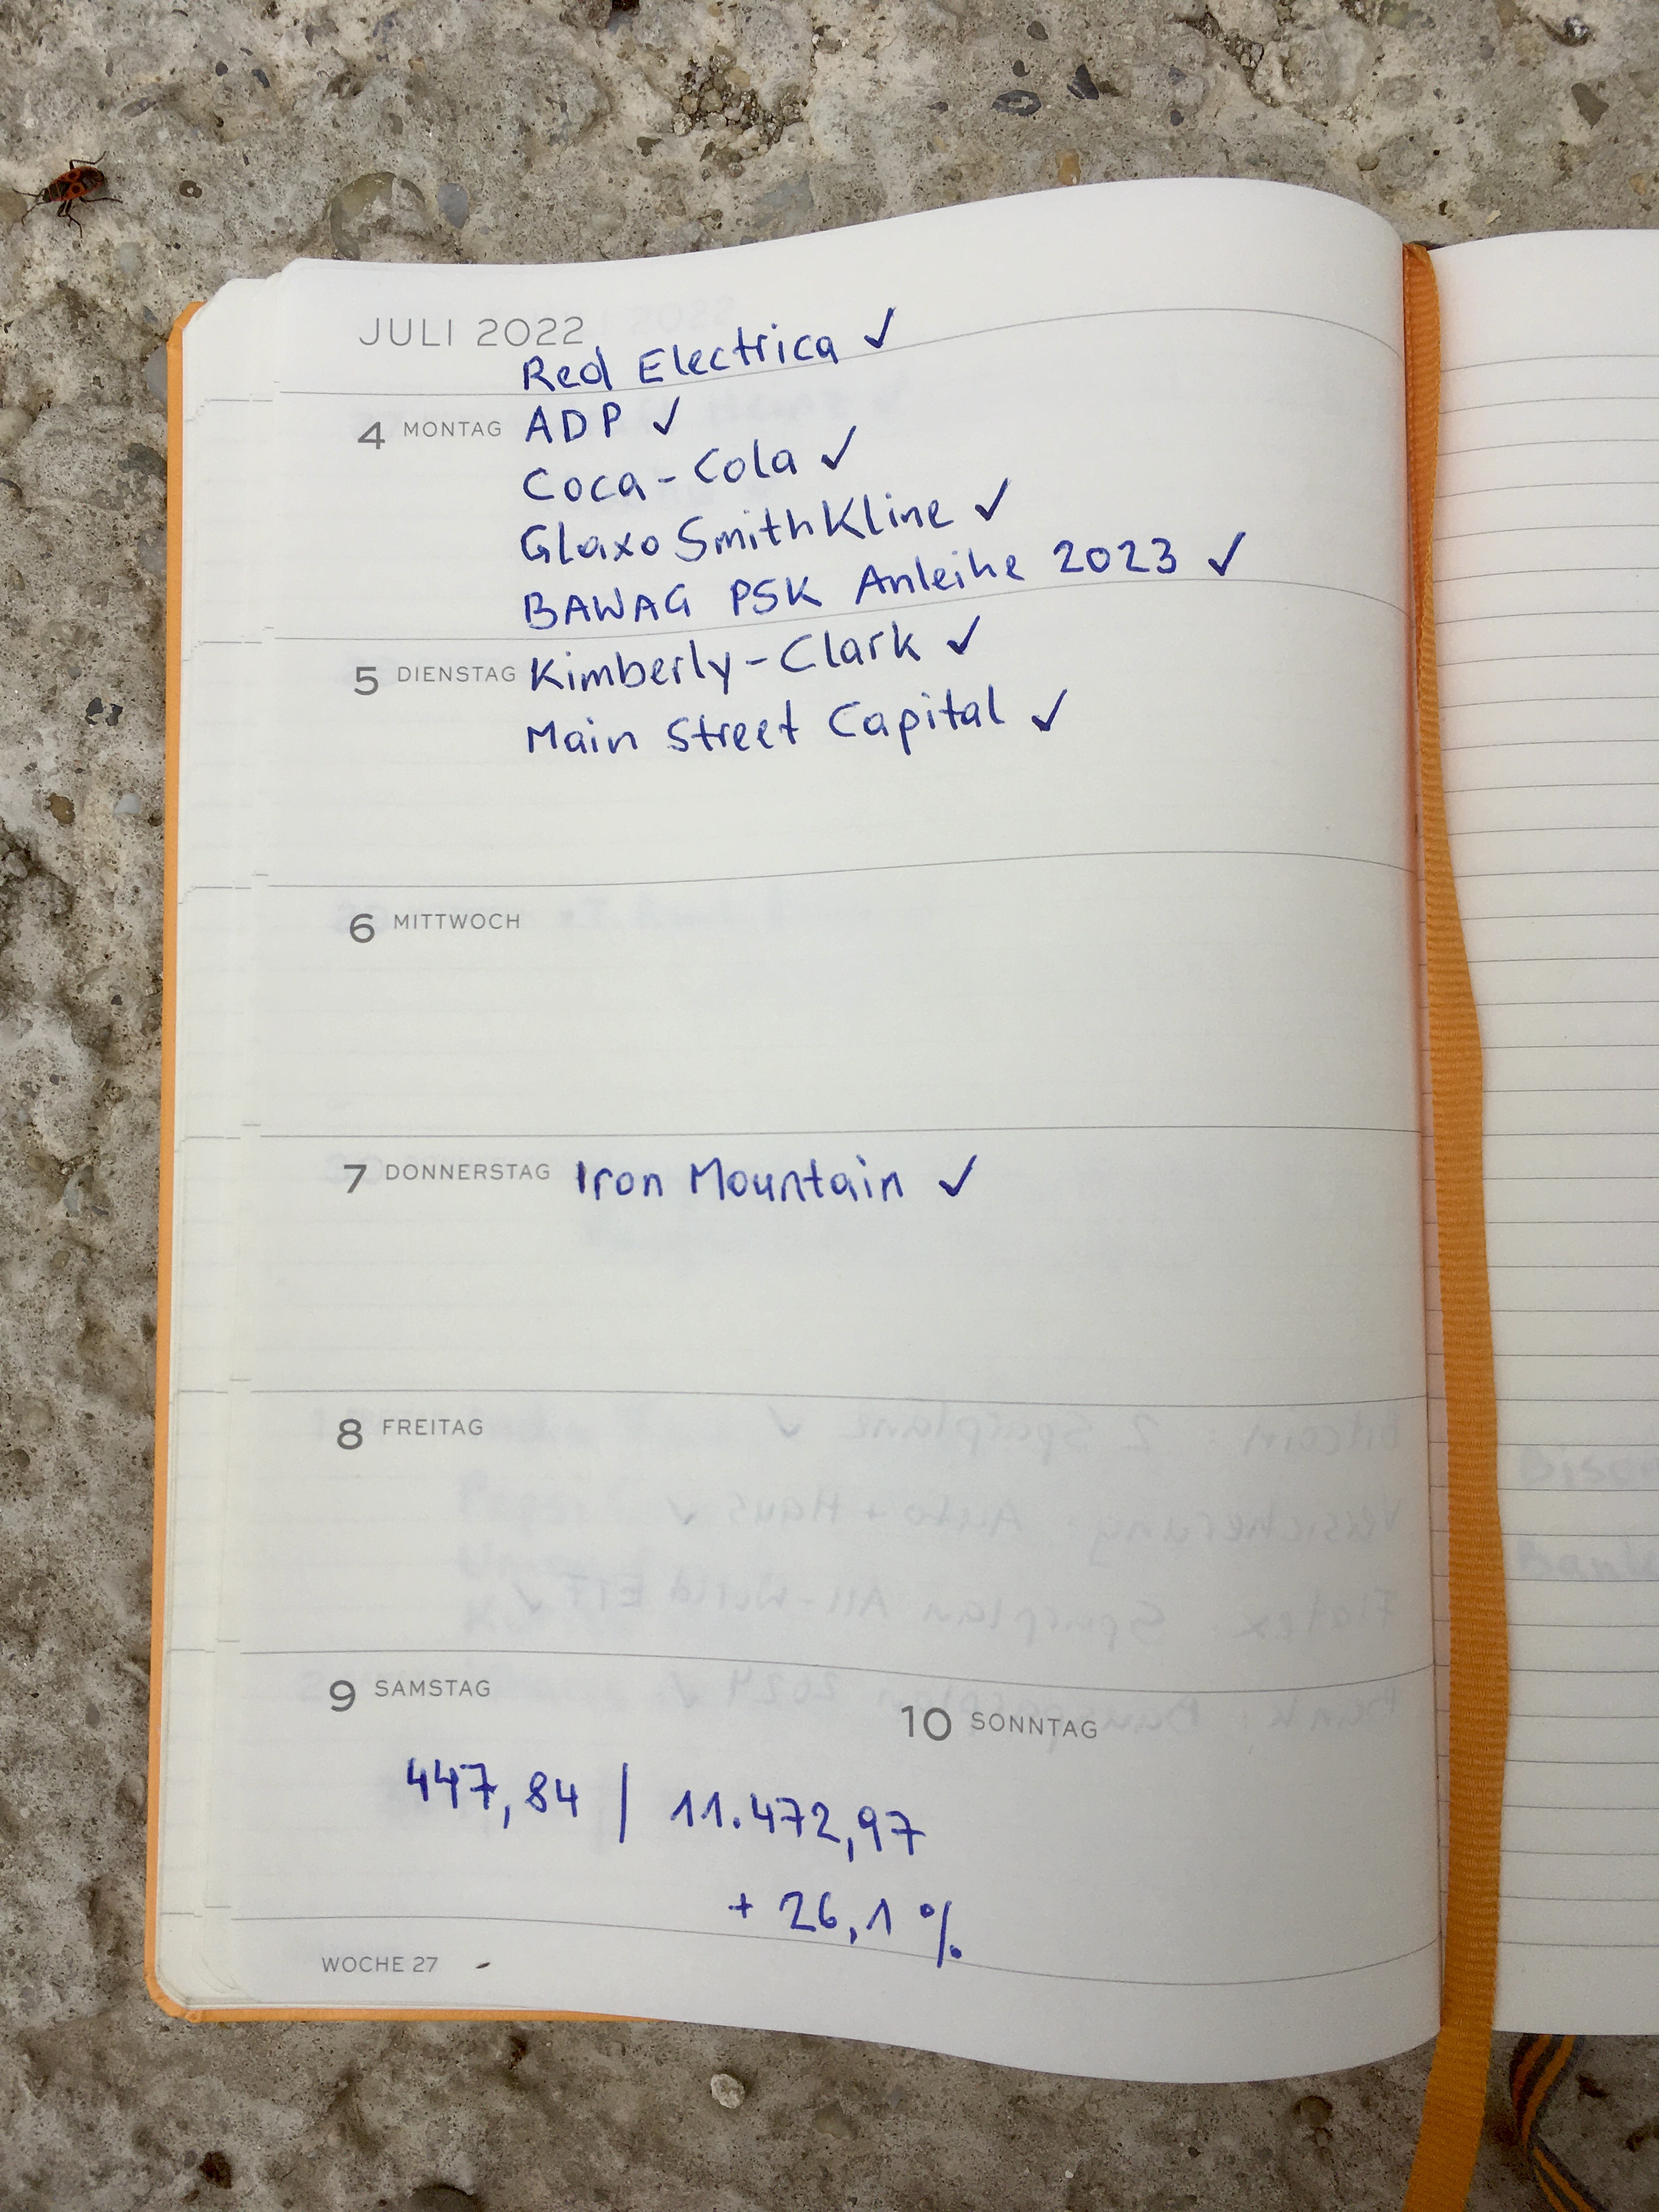 JULI 2022
Red Electrica ✓
4 MONTAG ADP ✓
Coca-Cola ✓
Glaxo SmithKline ✓
BAWAG PSK Anleihe 2023 ✓
5 DIENSTAG Kimberly-Clark ✓
Main Street Capital ✓
6 MITTWOCH
7 DONNERSTAG Iron Mountain ✓
8 FREITAG
9 SAMSTAG
10 SONNTAG
447,84 | 11.472,97
+ 26,1 %
WOCHE 27